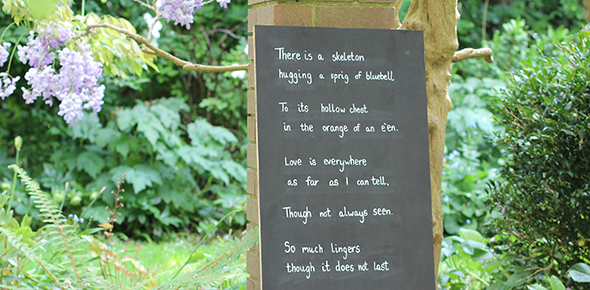 There is a skeleton
hugging a sprig of bluebell
To its hollow chest
in the orange of an e'en.
Love is everywhere
as far as I can tell,
Though not always seen.
So much lingers
though it does not last